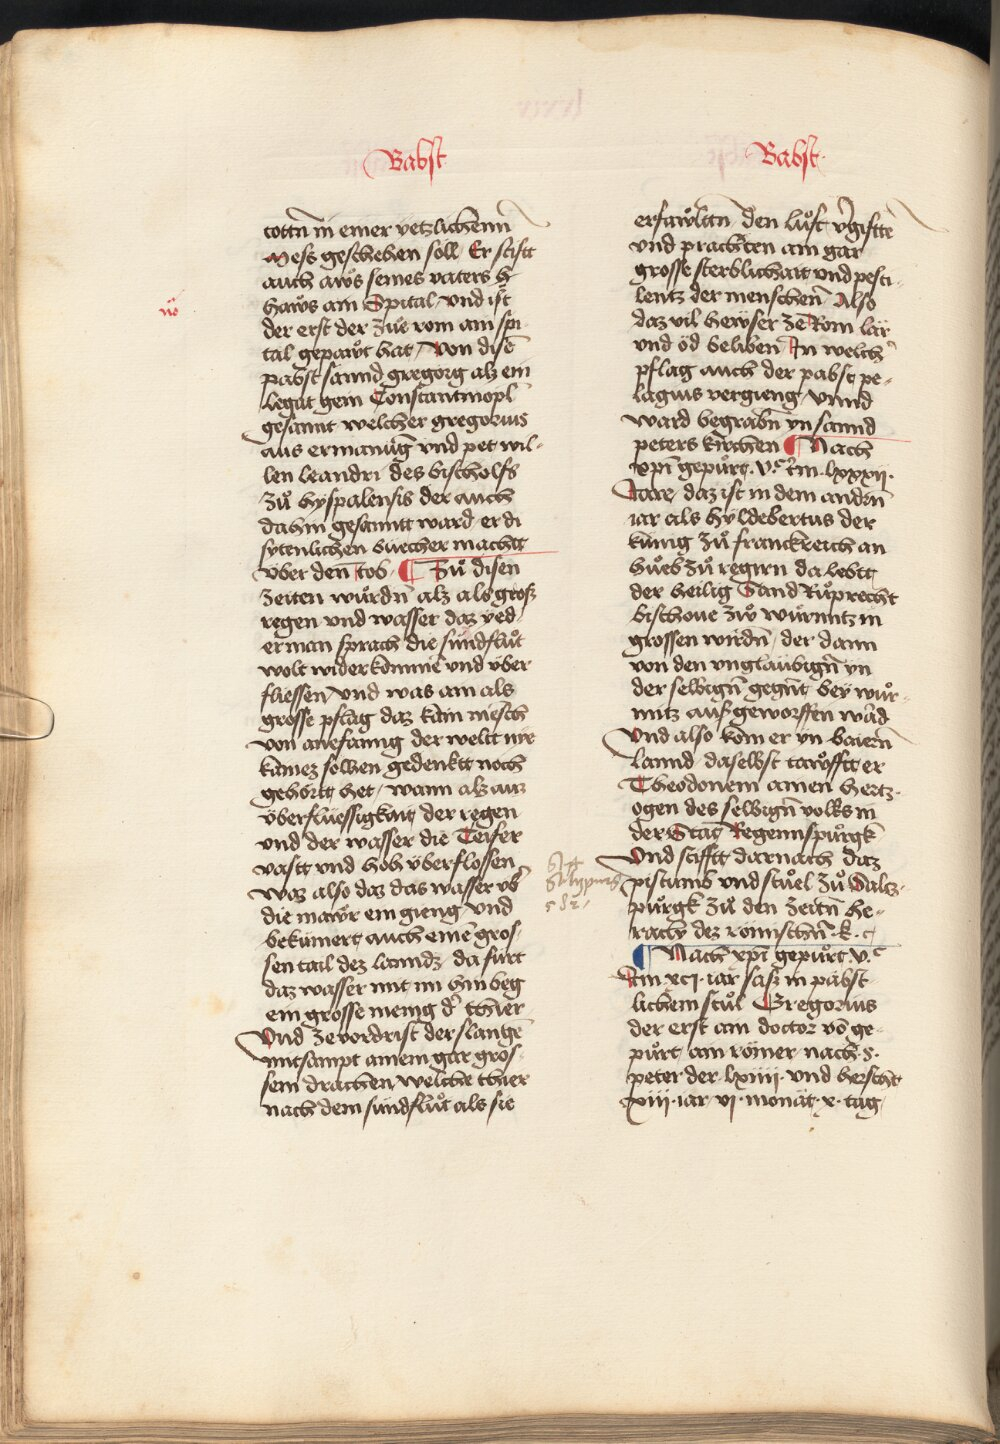 Babst
tottn̄ in einer yetzlichenn
Mess geschehen soll Er stift
auch aẃs seines vaters h
Haẃs am Spital vnd ist
der erst der zůe rom am spi
tal gepaẃt hat Von disē
pabst sannd gregorg alz ein
Legat gem Constantinopl
gesannt welcher gregorius
aus ermanūg vnd pet wil-
len leandri des bischolfs
zů hyspalensis der auch
dahin gesanntt ward er di
sytenlichen buecher machtt
vber den Iob ¶ Zů disen
zeiten wurdn̄ alz als groß
regen vnd wasser daz yed
erman sprach die sundflůt
wolt widerkommē vnd vber
fliessen vnd was am als
grosse pflag daz kain mesch
von anefanng der weltt nie
kainez solhen gedenktt noch
gehörtt het wann alz auz
vberflüessigkait der regen
vnd der wasser die Teifer
vastt vnd hoh vberflossen
Waz also daz das wasser vb̄
die maẃr ein gieng vnd
bekümert auch einē gros-
sen tail dez lanndz da fürt
daz wasser mit im hin beg
ein grosse menig d' thier
Vnd zevordrist der slangē
mitsampt ainem gar gros-
sem drachen welche thier
nach dem sündflůt als sie
nō
Babst
erfaẃltn̄ den lůft v̄gifftē
vnd prachten ain gar
grosse sterblichait vnd pesti-
lentz der menschen Also
daz vil heẃser ze Rom lär
vnd öd beliben In welch'
pflag auch der pabst pe-
lagius vergieng vnnd
ward begrabn̄ yn sannd
peters kirchen ¶ Nach
xp̄i gepůrt v.c Im lxxxij.
Iare daz ist in dem andn̄
iar als hyldebertus der
künig zů franckreich an
hůeb zů regirn da lebtt
der heilig Sand Růprecht
bischoue zẃ wůrmtz in
grossen wirdn̄ der dann
von den vnglaubign̄ yn
der selbign̄ gegn̄t bey wůr-
mitz auß geworffen wād
Vnd also kom er yn baiern̄
lannd daselbst taẃfftt er
Theodonem ainen hertz-
ogen des selbign̄ volks in
der Stat Regennspůrgk
Vnd stifftt darnach daz
pistumb vnd stůel zů Salz-
půrgk zů den zeitn̄ he-
raclij dez römischn̄ k. c
¶ Nach xp̄i gepůrt v.c
Im xcj iar saß in päbst
lichem stůl Gregorius
der erst ain doctor vō ge-
půrt ain römer nach s.
peter der lxiiij vnd herscht
xiij iar vj monät x tag
582